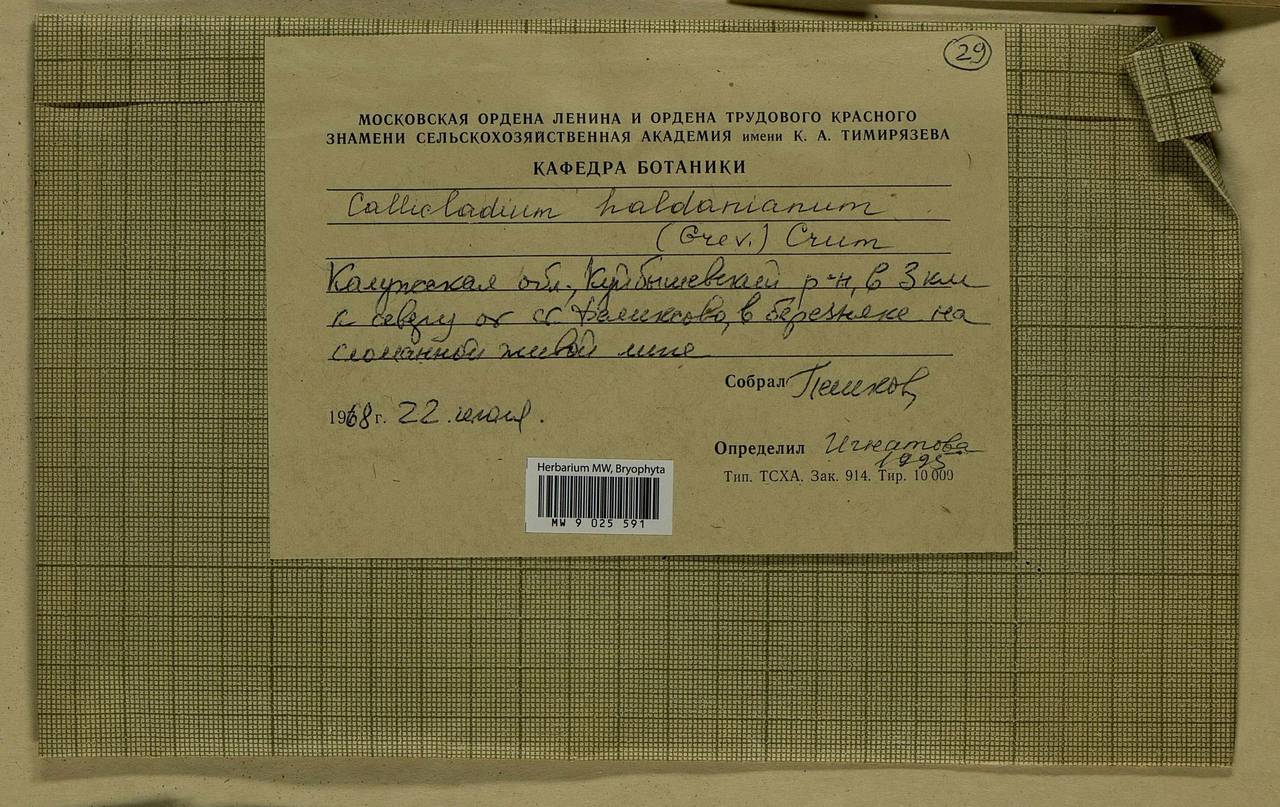 29
МОСКОВСКАЯ ОРДЕНА ЛЕНИНА И ОРДЕНА ТРУДОВОГО КРАСНОГО
ЗНАМЕНИ СЕЛЬСКОХОЗЯЙСТВЕННАЯ АКАДЕМИЯ имени К. А. ТИМИРЯЗЕВА
КАФЕДРА БОТАНИКИ
Callicladium haldanianum
(Grev.) Crum
Калужская обл., Куйбышевский р-н, в 3 км
к северу от в березняке на
сломанной живой липе
Собрал
1968 г. 22
Определил Игнатова
1995
Тип. ТСХА. Зак. 914. Тир. 10 000
Herbarium MW, Bryophyta
MW 9 025 591